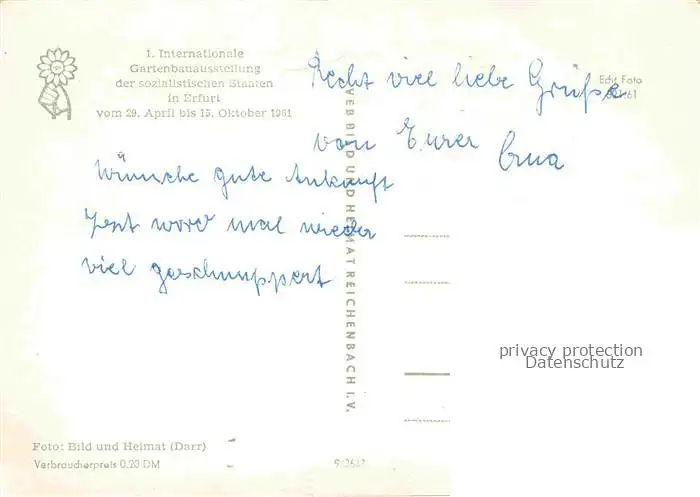 1. Internationale
Gartenbauausstellung
der sozialistischen Staaten
in Erfurt
vom 29. April bis 15. Oktober 1961
Echt Foto
Recht viel liebe Grüße
von Eurer Erna
Wünsche gute Ankunft
Jetzt word mal wieder
viel geschnuppert
VEB BILD UND HEIMAT REICHENBACH I. V.
privacy protection
Datenschutz
Foto: Bild und Heimat (Darr)
Verbraucherpreis 0.20 DM